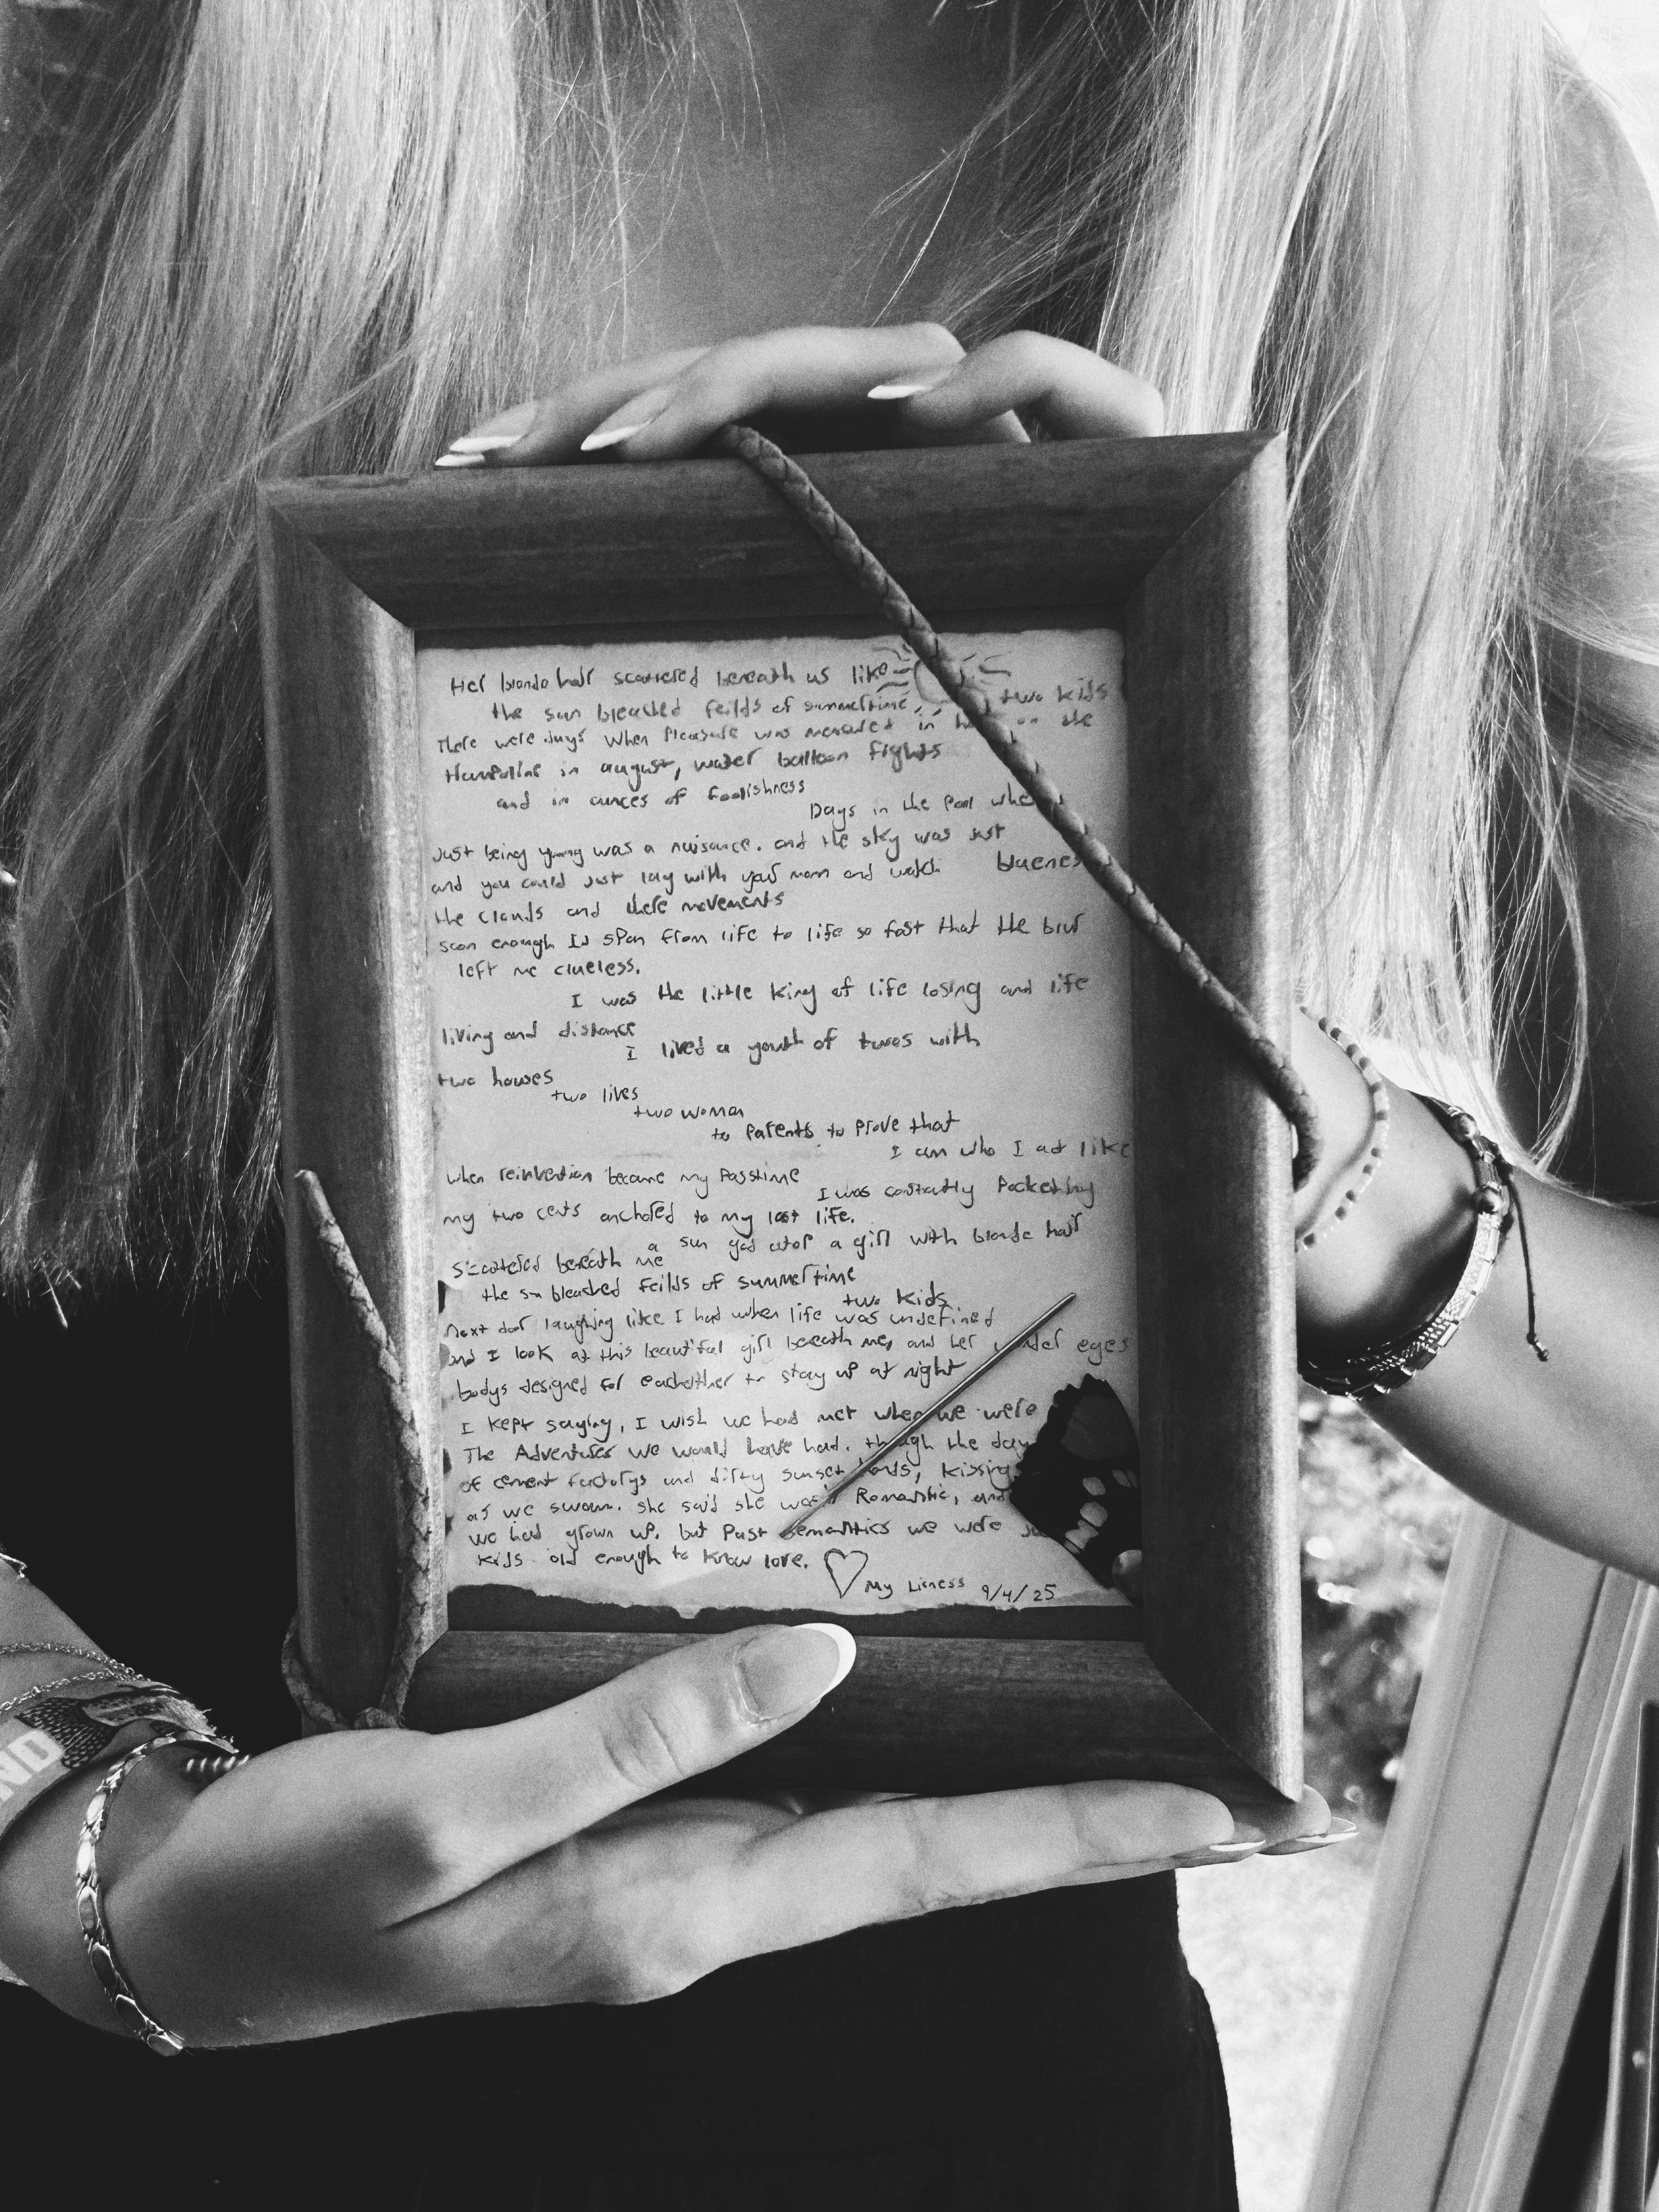 Her blonde hair scattered beneath us like
the sun bleached feilds of summertime, two kids
There were days when pleasure was measured in on the
trampoline in august, water balloon fights
and in ounces of foolishness
Days in the pool when
Just being young was a nuisance. and the sky was just
blueness
and you could just lay with your mom and watch
the clouds and there movements
soon enough Id span from life to life so fast that the blur
left me clueless.
I was the little king of life losing and life
living and distance
I lived a youth of twos with
two houses
two lives
two woman
to parents to prove that
I am who I act like
when reinvention became my passtime
I was constantly pocketing
my two cents anchored to my last life.
a sun god atop a girl with blonde hair
scattered beneath me
the sun bleached feilds of summertime
two kids
next door laughing like I had when life was undefined
and I look at this beautiful girl beneath me, and her under eyes
bodys designed for eachother to stay up at night
I kept saying, I wish we had met when we were
The Adventures we would have had. though the day
of cement factorys and dirty sunset ponds, kissing
as we swam. she said she wasn't Romantic, and
we had grown up. but past semantics we were
kids old enough to know love.
My Licness 9/4/25
ND